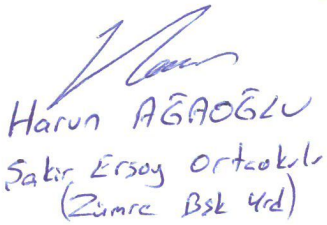 Harun AĞAOĞLU
Şakir Ersoy Ortaokulu
(Zümre Bşk Yrd)